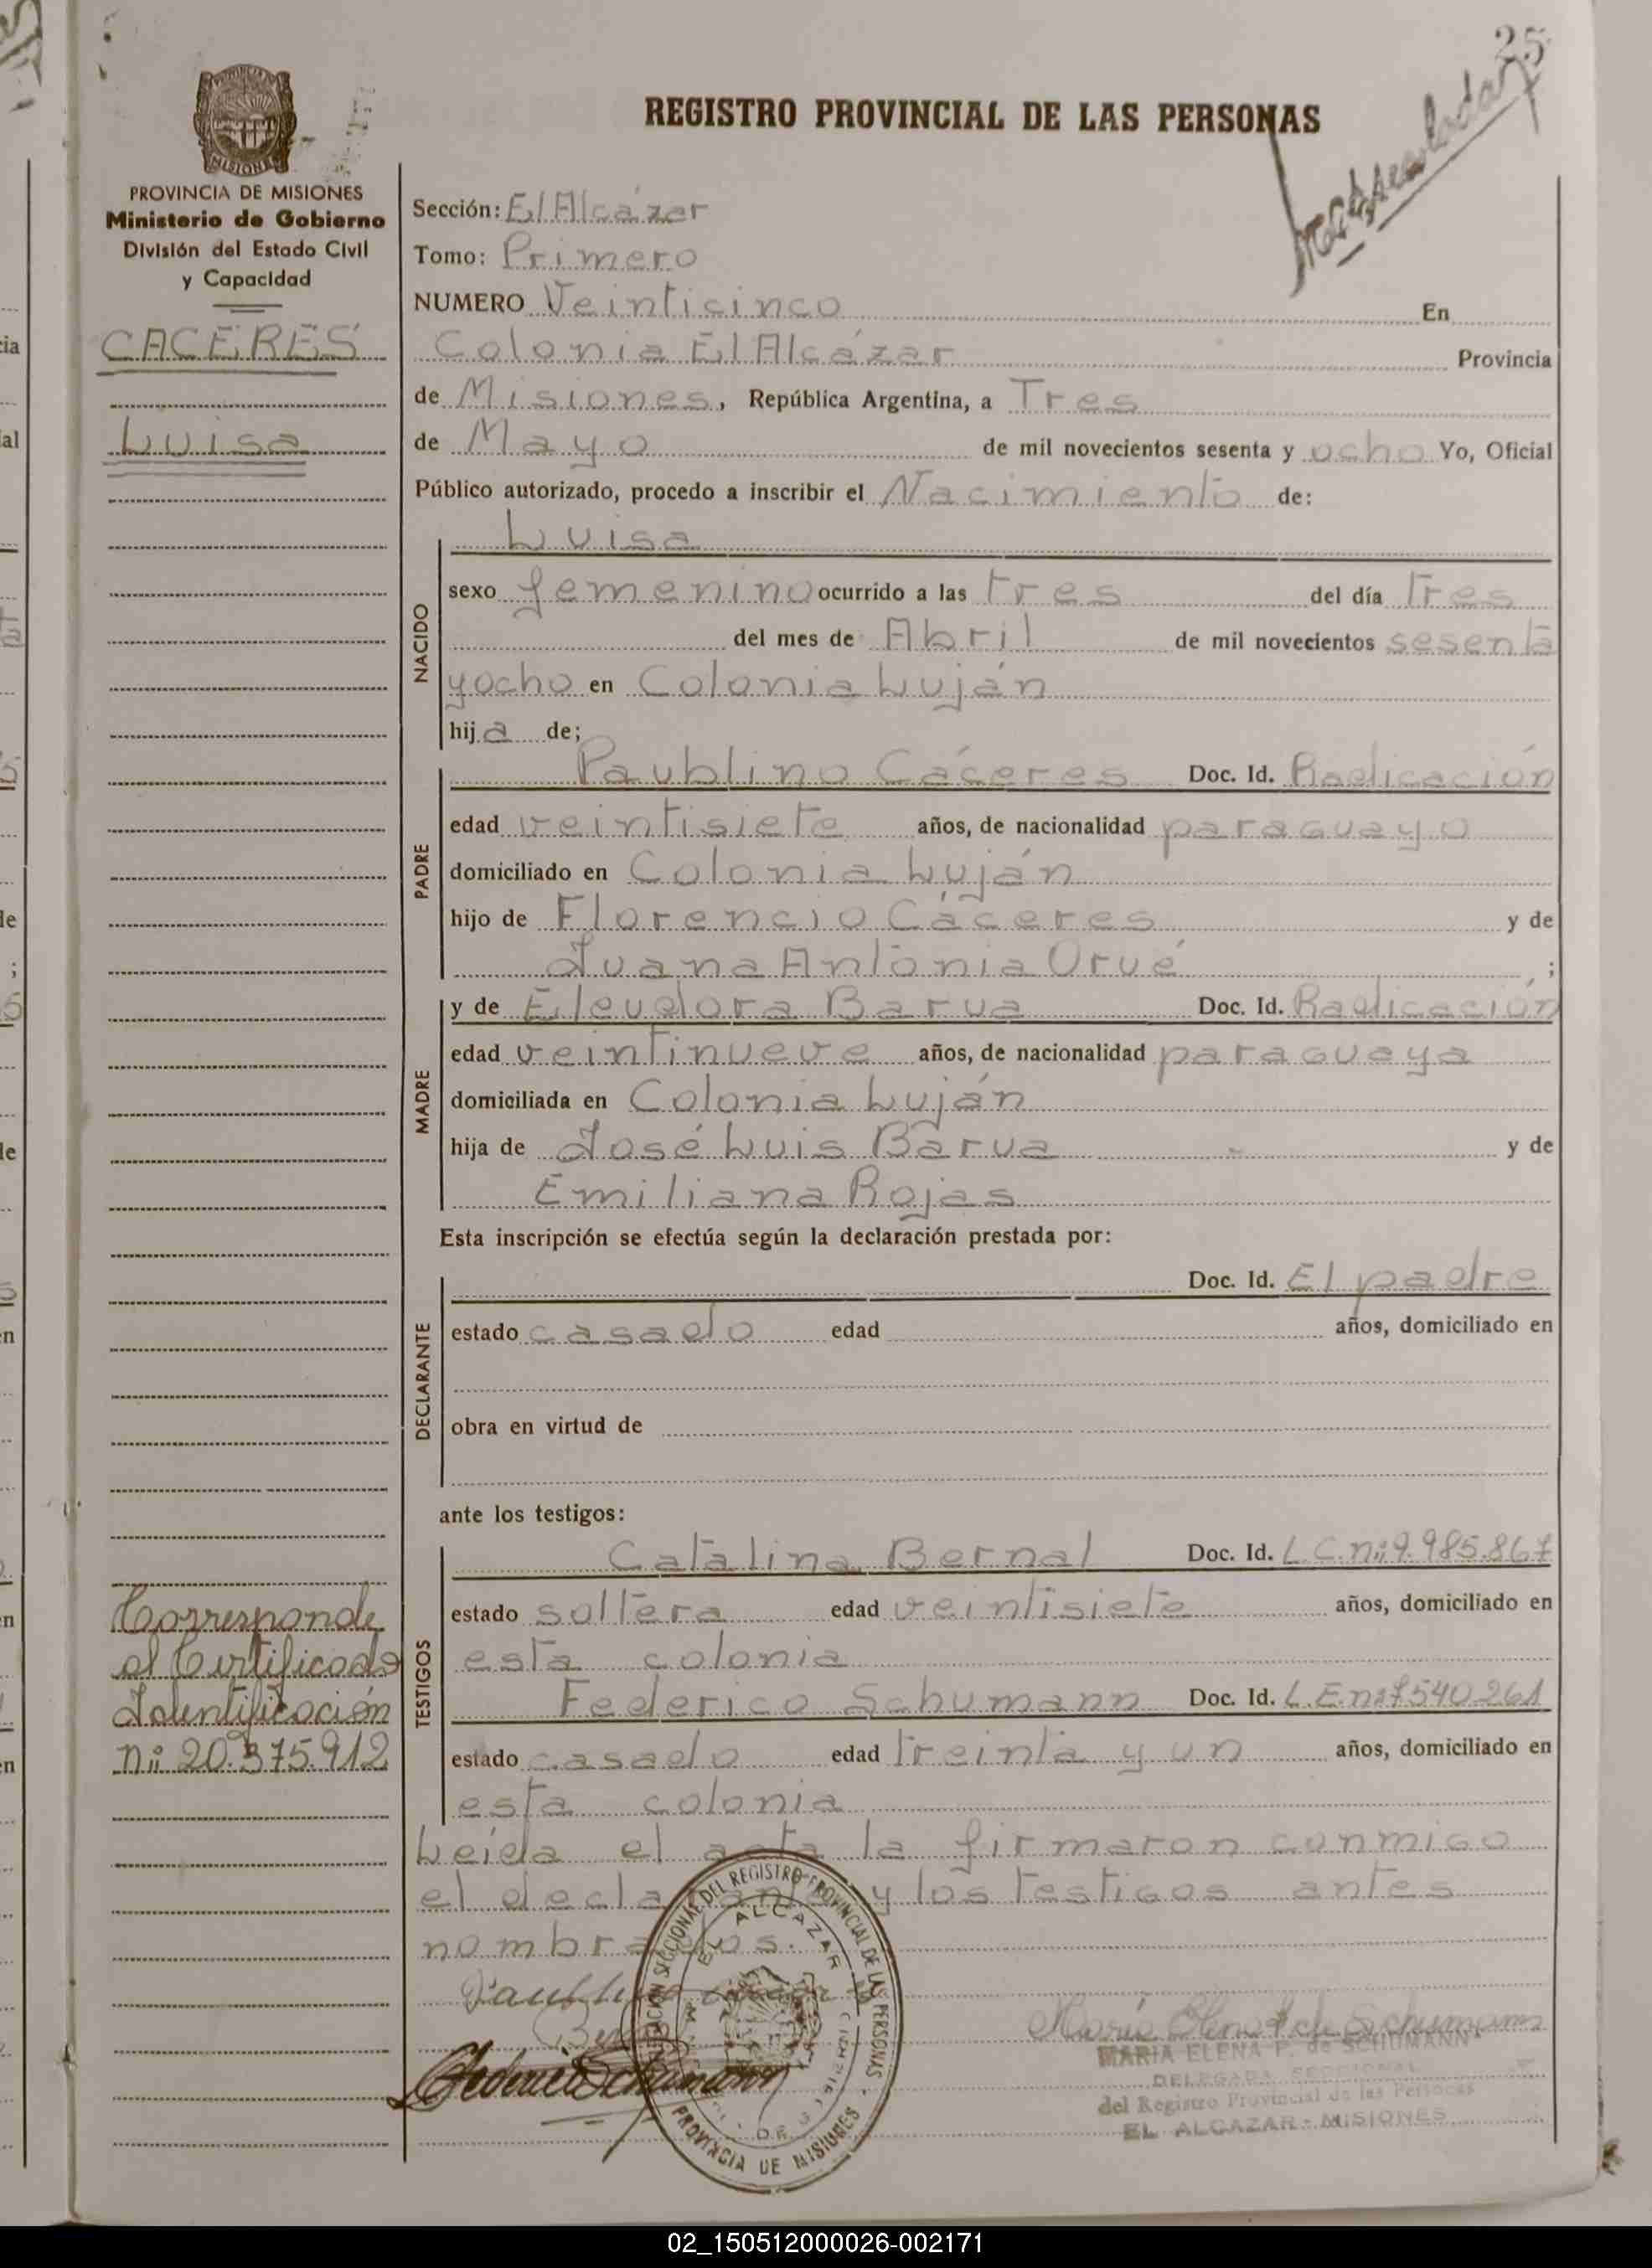 25
REGISTRO PROVINCIAL DE LAS PERSONAS
PROVINCIA DE MISIONES
Ministerio de Gobierno
División del Estado Civil
y Capacidad
CACERES
Luisa
Sección: El Alcázar
Tomo: Primero
NUMERO Veinticinco En
Colonia El Alcázar Provincia
de Misiones, República Argentina, a Tres
de Mayo de mil novecientos sesenta y ocho Yo, Oficial
Público autorizado, procedo a inscribir el Nacimiento de:
Luisa
NACIDO
sexo femenino ocurrido a las tres del día Tres
del mes de Abril de mil novecientos sesenta
y ocho en Colonia Luján
hija de;
PADRE
Paublino Cáceres Doc. Id. Radicación
edad veintisiete años, de nacionalidad paraguayo
domiciliado en Colonia Luján
hijo de Florencio Cáceres y de
Juana Antonia Orué ;
MADRE
y de Eleudora Barua Doc. Id. Radicación
edad veintinueve años, de nacionalidad paraguaya
domiciliada en Colonia Luján
hija de José Luis Barua y de
Emiliana Rojas
Esta inscripción se efectúa según la declaración prestada por:
DECLARANTE
Doc. Id. El padre
estado casado edad años, domiciliado en
obra en virtud de
ante los testigos:
TESTIGOS
Catalina Bernal Doc. Id. L.C.nº 9.985.867
estado soltera edad veintisiete años, domiciliado en
esta colonia
Federico Schumann Doc. Id. L.E.nº 7540261
estado casado edad treinta y un años, domiciliado en
esta colonia
Corresponde
al Certificado
Identificación
nº 20.375.912
Leída el acta la firmaron conmigo
el declarante y los testigos antes
nombrados.
Federico Schumann
MARIA ELENA P. de SCHUMANN
DELEGADA SECCIONAL
del Registro Provincial de las Personas
EL ALCAZAR - MISIONES
DEL REGISTRO PROVINCIAL DE LAS PERSONAS
EL ALCAZAR
PROVINCIA DE MISIONES
02_150512000026-002171